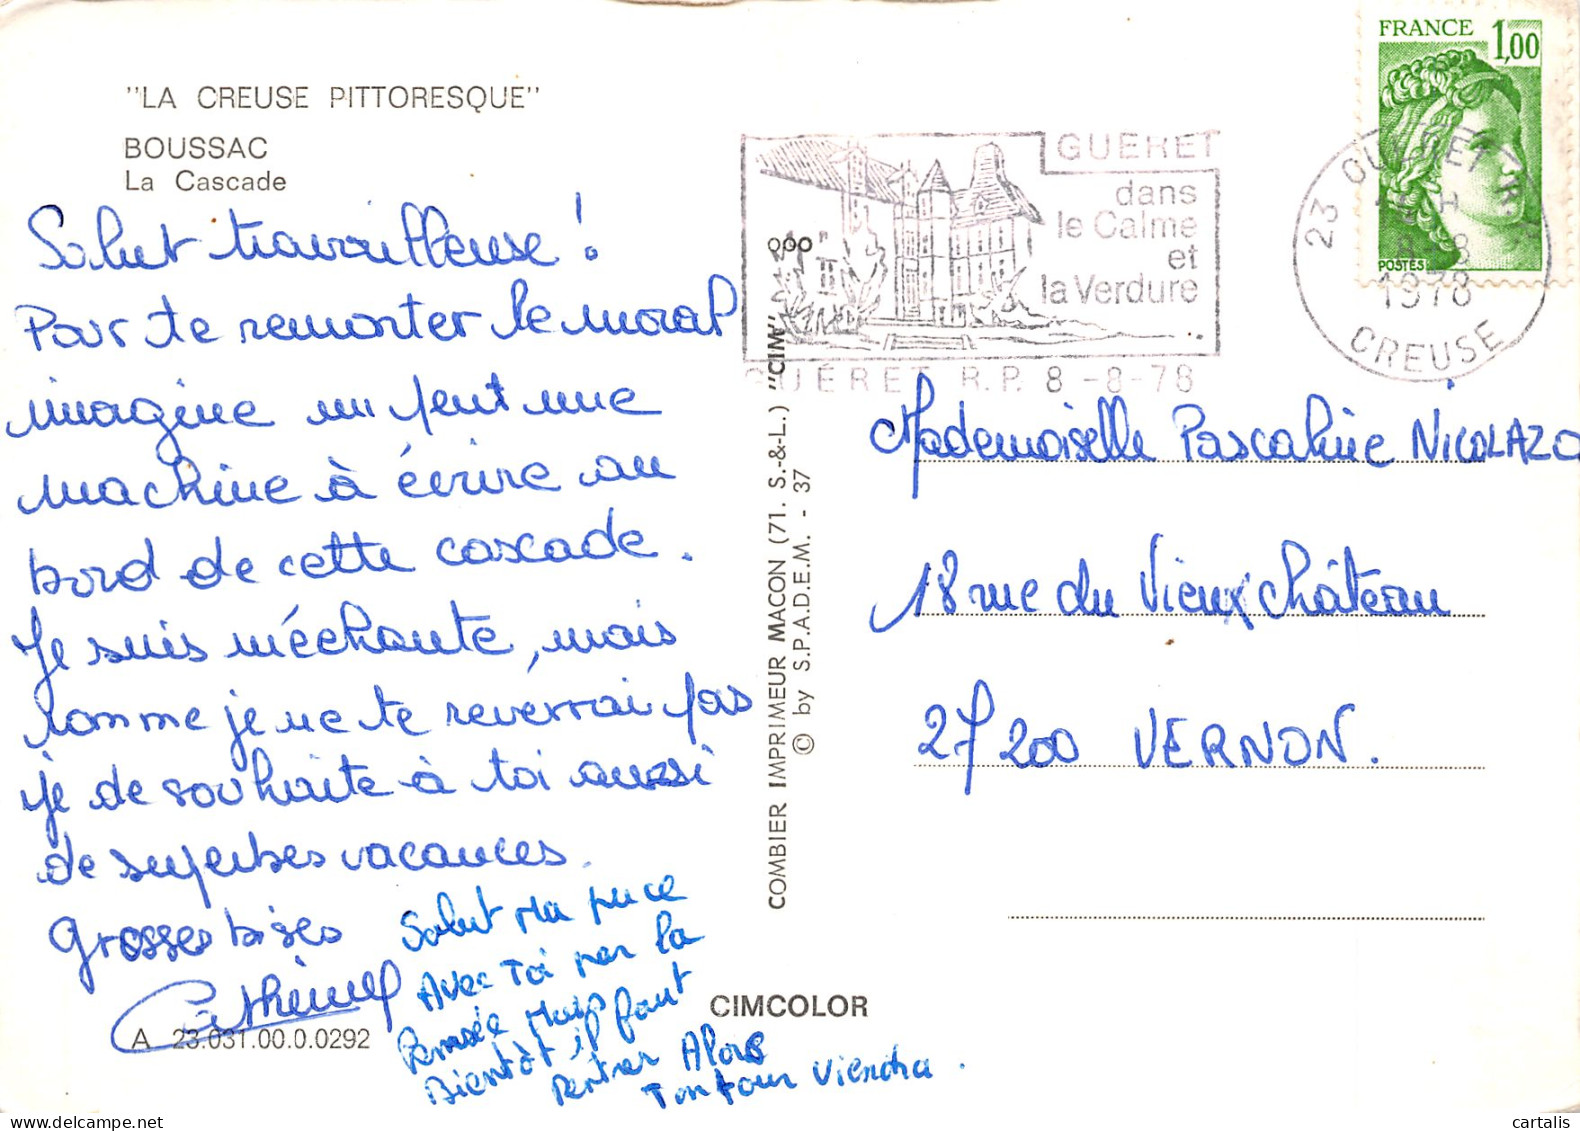 "LA CREUSE PITTORESQUE"
BOUSSAC
La Cascade
Salut travailleuse !
Pour te remonter le moral
imagine un peut une
machine à écrire au
bord de cette cascade.
Je suis méchante, mais
comme je ne te reverrai pas
je de souhaite à toi aussi
de superbes vacances.
Grosses bises
A 23.031.00.0.0292
Salut Ma puce
Avec Toi par la
Pensée Mais
Bientôt il faut
rentrer Alors
Ton tour Viendra.
CIMCOLOR
COMBIER IMPRIMEUR MACON (71. S.-&-L.) "CIM"
© by S.P.A.D.E.M. - 37
GUERET
dans
le Calme
et
la Verdure
GUÉRET R.P. 8-8-78
FRANCE 1,00
POSTES
23 GUERET R.P.
8-8
1978
CREUSE
Mademoiselle Pascaline NICOLAZO
18 rue du Vieux château
27200 VERNON.
cartalis